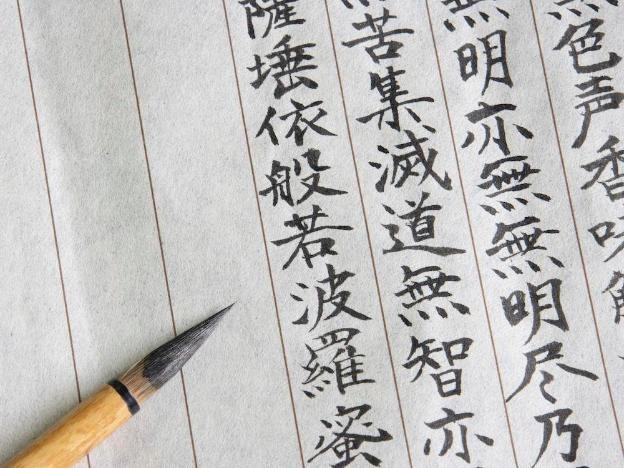 色声香味触
無明亦無無明尽乃
苦集滅道無智亦
薩埵依般若波羅蜜